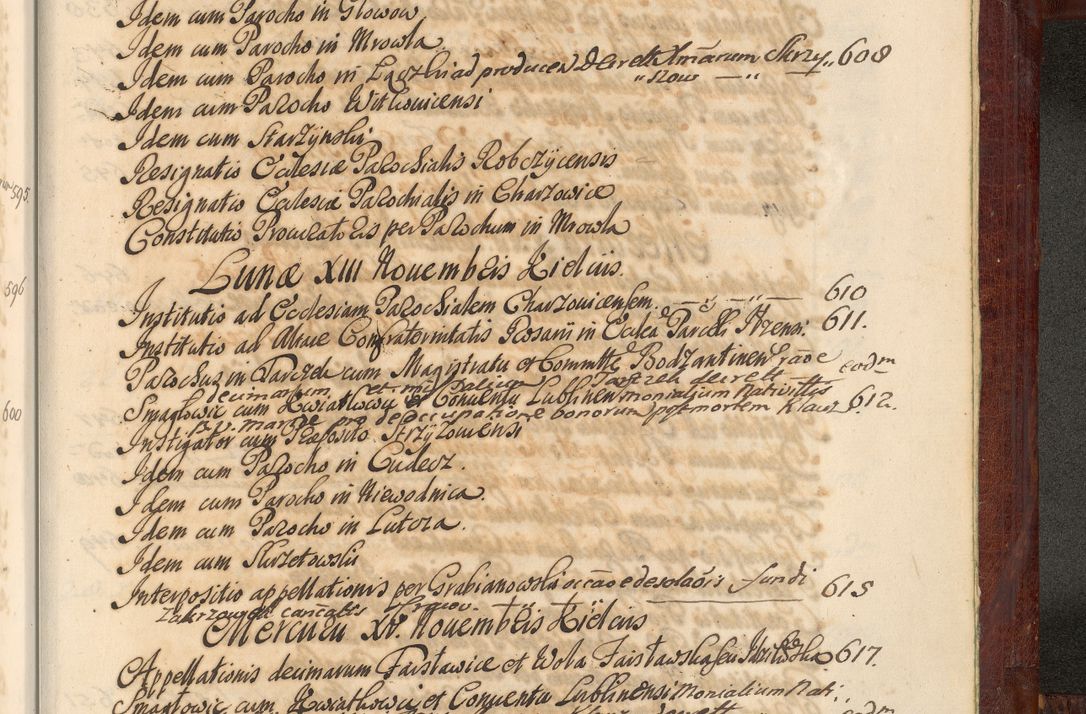 Idem cum Parocho in Głowow
Idem cum Parocho in Mrowla
Idem cum Parocho in Łączki ad producen Decret Xmarum Skrzy„ 608
„szow — „
Idem cum Parocho Witkowicensi
Idem cum Starzynski
Resignatio Ecclesiæ Parochialis Robczÿcensis
Resignatio Ecclesiæ Parochialis in Charzowice
Constitutio Procuratoris per Parochum in Mrowla
Lunæ XIII Nouembris Kielcijs.
Institutio ad Ecclesiam Parochialem Charzouicensem — „ — „ — 610
Institutio ad Altare Confraternitatis Rosarij in Ecclea Parcli Itzensi. 611.
Parochus in Tarczek cum Magistratu et Committe Bodzantinen rãoe eodm
decimarum Tarczek decrett
Smagłowic cum Kwiatkowic et Conuentu Lublinen monialium Natiuittis 612.
pro occupatione bonorum post mortem
Instigator cum Præposito Strzÿzouiensi
Idem cum Parocho in Cudecz.
Idem cum Parocho in Niewodnica.
Idem cum Parocho in Lutcza.
Idem cum Skrzetowski
Interpositio appellationis per Grabianowski occãoe desolaõis fundi 615
Mercurii XV. Nouembris Kielcijs
Appellationis decimarum Faisławice et Wola Faisławska 617.
Smagłowic cum Kwiatkowic et Conuentu Lublinensi Monialium Nati:
eodm
595.
596
600